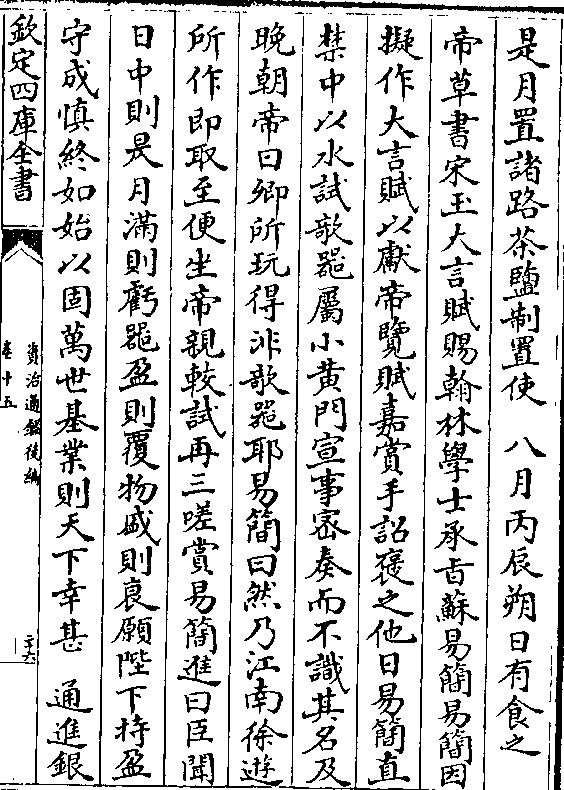 是月置諸路茶鹽制置使　八月丙辰朔日有食之
帝草書宋玉大言賦賜翰林學士承旨蘇易簡易簡因
擬作大言賦以獻帝覽賦嘉賞手詔褒之他日易簡直
禁中以水試欹器屬小黄門宣事宻奏而不識其名及
晚朝帝曰卿所玩得非欹器耶易簡曰然乃江南徐遊
所作即取至便坐帝親較試再三嗟賞易簡進曰臣聞
日中則昃月滿則虧器盈則覆物盛則衰願陛下持盈
守成慎終如始以固萬世基業則天下幸甚　通進銀
欽定四庫全書
資治通鑑後編
卷十五
二十六